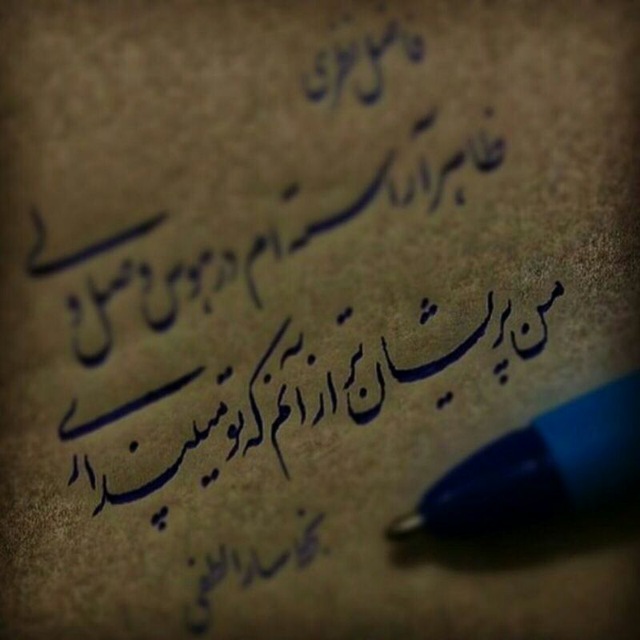 فاضل نظری
ظاهر آراسته‌ام در هوس وصل ولی
من پریشان‌تر از آنم که تو می‌پنداری